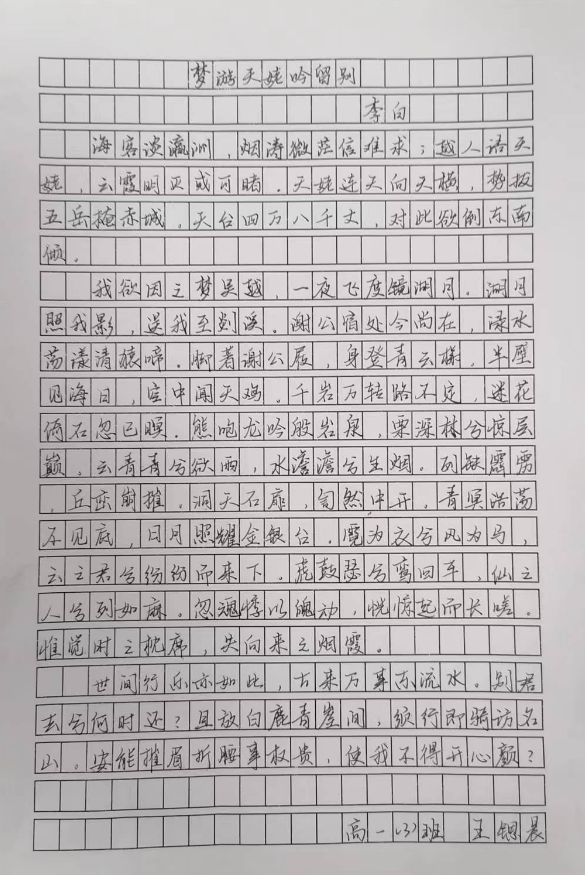 梦游天姥吟留别
李白
海客谈瀛洲，烟涛微茫信难求；越人语天
姥，云霞明灭或可睹。天姥连天向天横，势拔
五岳掩赤城。天台四万八千丈，对此欲倒东南
倾。
我欲因之梦吴越，一夜飞度镜湖月。湖月
照我影，送我至剡溪。谢公宿处今尚在，渌水
荡漾清猿啼。脚著谢公屐，身登青云梯，半壁
见海日，空中闻天鸡。千岩万转路不定，迷花
倚石忽已暝。熊咆龙吟殷岩泉，栗深林兮惊层
巅，云青青兮欲雨，水澹澹兮生烟。列缺霹雳
，丘峦崩摧。洞天石扉，訇然中开。青冥浩荡
不见底，日月照耀金银台。霓为衣兮风为马，
云之君兮纷纷而来下。虎鼓瑟兮鸾回车，仙之
人兮列如麻。忽魂悸以魄动，恍惊起而长嗟。
惟觉时之枕席，失向来之烟霞。
世间行乐亦如此，古来万事东流水。别君
去兮何时还？且放白鹿青崖间，须行即骑访名
山。安能摧眉折腰事权贵，使我不得开心颜？
高一(3)班 王锶晨